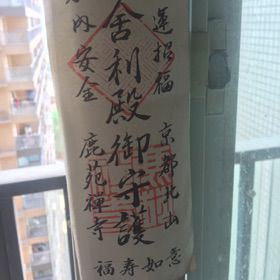 運招福 京都北山
舎利殿御守護
内安全 鹿苑禅寺
福寿如意